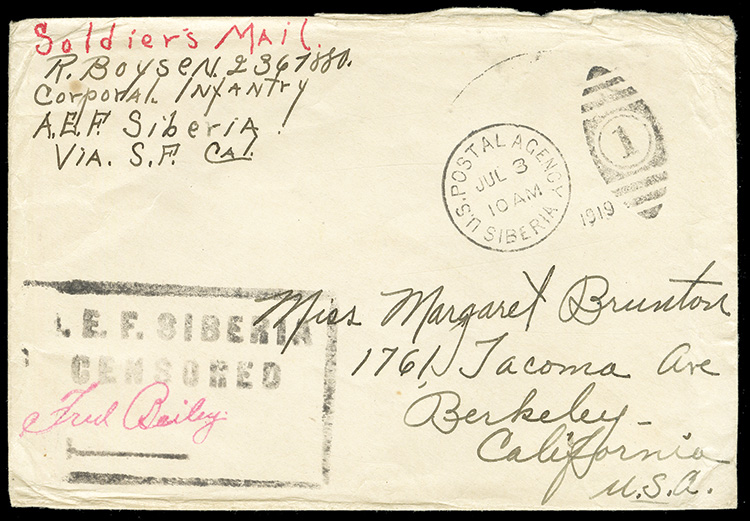 Soldier's Mail.
R. Boysen. 2367880.
Corporal. Infantry
A.E.F. Siberia.
Via. S.F. Cal.
U.S. POSTAL AGENCY
JUL 3
10 AM
SIBERIA
1919
1
Miss Margaret Brunton
1761 Tacoma Ave
Berkeley
California
U.S.A.
. E. F. SIBERIA
CENSORED
Fred Bailey.